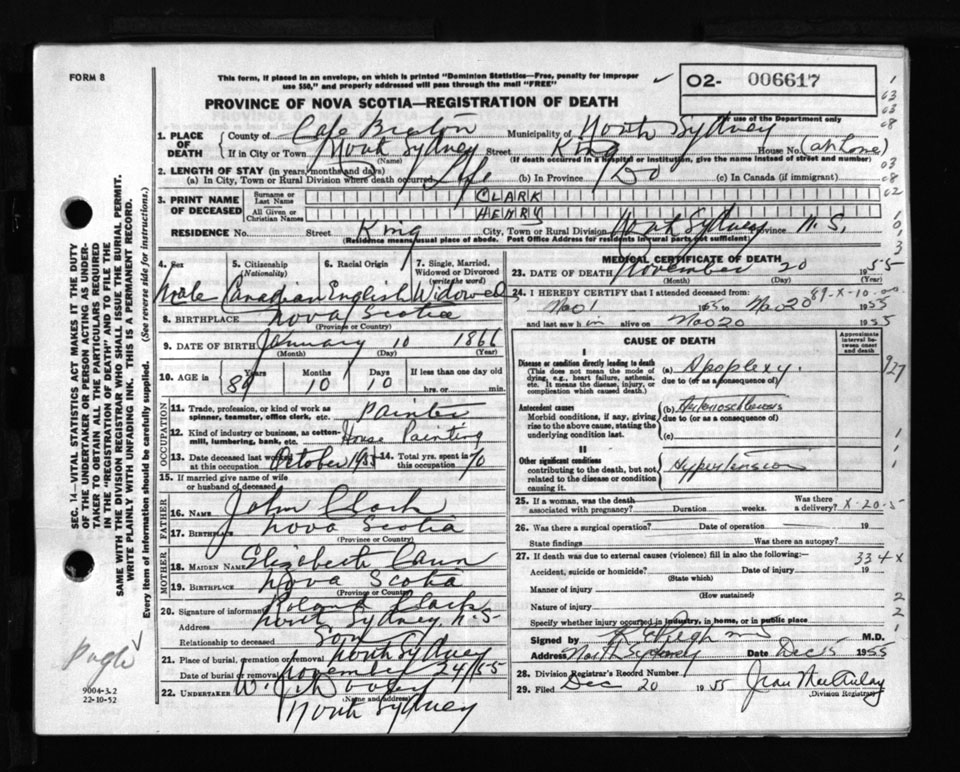 FORM 8
This form, if placed in an envelope, on which is printed "Dominion Statistics—Free, penalty for improper
use $50," and properly addressed will pass through the mail "FREE"
02- 006617
For use of the Department only
PROVINCE OF NOVA SCOTIA—REGISTRATION OF DEATH
1. PLACE OF DEATH
County of Cape Breton Municipality of North Sydney
If in City or Town North Sydney Street King House No. (at home)
(Name) (If death occurred in a hospital or institution, give the name instead of street and number)
2. LENGTH OF STAY (in years, months and days)
(a) In City, Town or Rural Division where death occurred Life (b) In Province Do (c) In Canada (if immigrant)
3. PRINT NAME OF DECEASED
Surname or Last Name CLARK
All Given or Christian Names HENRY
RESIDENCE No. Street King City, Town or Rural Division North Sydney Province N.S.
(Residence means usual place of abode. Post Office Address for residents in rural parts not sufficient)
4. Sex 5. Citizenship (Nationality) 6. Racial Origin 7. Single, Married, Widowed or Divorced (write the word)
Male Canadian English Widowed
8. BIRTHPLACE Nova Scotia
(Province or Country)
9. DATE OF BIRTH January 10 1866
(Month) (Day) (Year)
10. AGE in Years Months Days If less than one day old
89 10 10 hrs. or min.
OCCUPATION
11. Trade, profession or kind of work as
spinner, teamster, office clerk, etc. Painter
12. Kind of industry or business, as cotton-
mill, lumbering, bank, etc. House Painting
13. Date deceased last worked at this occupation October 1955 14. Total yrs. spent in this occupation 70
15. If married give name of wife
or husband of deceased
FATHER
16. NAME John Clark
17. BIRTHPLACE Nova Scotia
(Province or Country)
MOTHER
18. MAIDEN NAME Elizabeth
19. BIRTHPLACE Nova Scotia
(Province or Country)
20. Signature of informant Roland Clark
Address North Sydney N.S.
Relationship to deceased Son
21. Place of burial, cremation or removal North Sydney
Date of burial or removal November 24/55
22. UNDERTAKER W. J. Dooley
(Name and address)
North Sydney
MEDICAL CERTIFICATE OF DEATH
23. DATE OF DEATH November 20 1955
(Month) (Day) (Year)
24. I HEREBY CERTIFY that I attended deceased from: 89-X-10-00
Nov 1 1955 to Nov 20 1955
and last saw him alive on Nov 20 1955
CAUSE OF DEATH
Approximate interval between onset and death
I
Disease or condition directly leading to death
(This does not mean the mode of dying, e.g., heart failure, asthenia, etc. It means the disease, injury, or complication which caused death.)
(a) Apoplexy.
due to (or as a consequence of)
Antecedent causes
Morbid conditions, if any, giving rise to the above cause, stating the underlying condition last.
(b) Arteriosclerosis
due to (or as a consequence of)
(c)
II
Other significant conditions
contributing to the death, but not related to the disease or condition causing it.
Hypertension
25. If a woman, was the death Was there
associated with pregnancy? Duration weeks. a delivery? X-20-5
26. Was there a surgical operation? Date of operation 19
State findings Was there an autopsy?
27. If death was due to external causes (violence) fill in also the following:- 334X
Accident, suicide or homicide? Date of injury 19
(State which)
Manner of injury
(How sustained)
Nature of injury
Specify whether injury occurred in industry, in home, or in public place
Signed by M.D.
Address North Sydney Date Dec 15 1955
28. Division Registrar's Record Number
29. Filed Dec 20 1955 Jean MacAulay
(Division Registrar)
SEC. 14—VITAL STATISTICS ACT MAKES IT THE DUTY
OF THE UNDERTAKER OR PERSON ACTING AS UNDER-
TAKER TO OBTAIN ALL THE PARTICULARS REQUIRED
IN THE "REGISTRATION OF DEATH" AND TO FILE THE
SAME WITH THE DIVISION REGISTRAR WHO SHALL ISSUE THE BURIAL PERMIT.
WRITE PLAINLY WITH UNFADING INK. THIS IS A PERMANENT RECORD.
Every item of information should be carefully supplied. (See reverse side for instructions.)
9004-3.2
22-10-52